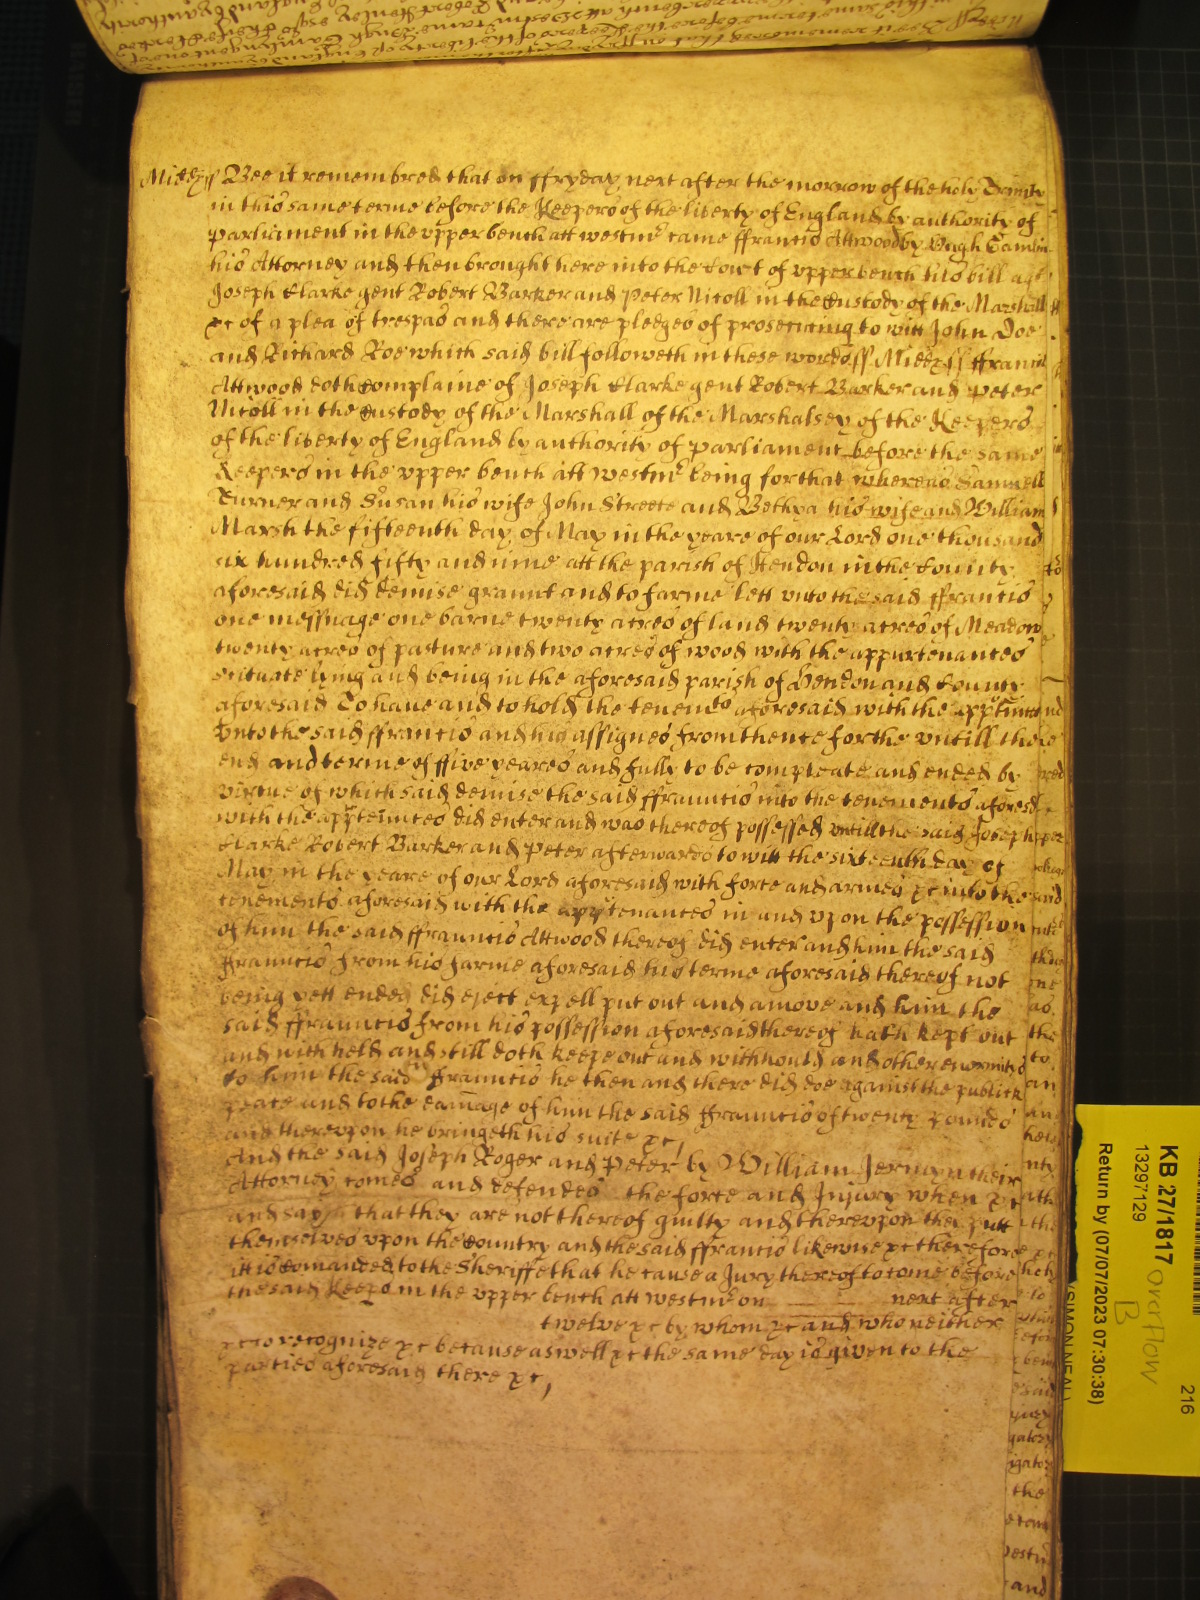 Midd ss Bee it remembred that on ffryday next after the morrow of the holy Trinity
in this same terme before the Keepers of the liberty of England by authority of
parliament in the vpper bench att westmr came ffrancis Attwood by Hugh Tamlin
his Attorney and then brought here into the Court of vpper bench his bill agt
Joseph Clarke gent Robert Barker and Peter Nicoll in the Custody of the Marshall
&c of a plea of trespas and there are pledges of prosecuting to witt John Doe
and Richard Roe which said bill followeth in these words ss Midd ss ffrancis
Attwood doth Complaine of Joseph Clarke gent Robert Barker and Peter
Nicoll in the Custody of the Marshall of the Marshalsey of the Keepers
of the liberty of England by authority of parliament before the same
Keepers in the vpper bench att westmr being for that whereas Samuell
Turner and Susan his wife John Streete and Bethya his wife and William
Marsh the fifteenth day of May in the yeare of our Lord one thousand
six hundred fifty and nine att the parish of Hendon in the County
aforesaid did demise graunt and to farme lett vnto the said ffrancis
one messuage one barne twenty acres of land twenty acres of Meadow
twenty acres of pasture and two acres of wood with the appurtenances
scituate lying and being in the aforesaid parish of Hendon and County
aforesaid To haue and to hold the tenemts aforesaid with the apptunces
vnto the said ffrancis and his assignes from thence forthe vntill the
end and terme of ffive yeares and fully to be compleate and ended by
virtue of which said demise the said ffrauncis into the tenements aforesd
with the apptennces did enter and was thereof possessed vntill the said Joseph
Clarke Robert Barker and Peter afterwards to witt the sixteenth day of
May in the yeare of our Lord aforesaid with force and armes &c into the
tenements aforesaid with the apptenances in and vpon the possession
of him the said ffrauncis Attwood thereof did enter and him the said
ffrauncis from his farme aforesaid his terme aforesaid thereof not
being yett ended did eject expell put out and amove and him the
said ffrauncis from his possession aforesaid thereof hath kept out
and with held and still doth keepe out and withhould and other enormities
to him the said ffrauncis he then and there did doe against the publick
peace and to the damage of him the said ffrauncis of twenty pounds
and therevpon he bringeth his suite &c,
And the said Joseph Roger and Peter by William Jermyn their
Attorney comes and defendes the force and Injury when &c
and say that they are not thereof guilty and therevpon they putt
themselves vpon the Country and the said ffrancis likewise &c therefore
itt is Comanded to the Sheriffe that he cause a Jury thereof to come before
the said Keeps in the vpper bench att westmr on next after
twelve &c by whom &c and who neither
&c to recognize &c because aswell &c the same day is given to the
parties aforesaid there &c,
KB 27/1817
13297129
Return by (07/07/2023 07:30:38)
overflow
B
216
(SIMON NEAL)